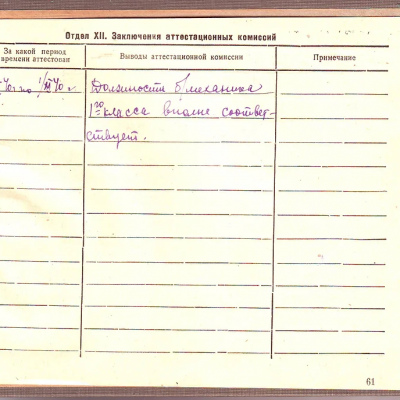 Отдел XII. Заключения аттестационных комиссий
За какой период
времени аттестован
Выводы аттестационной комиссии
Примечание
Должности б/механика
1го класса вполне соответ-
ствует.
61